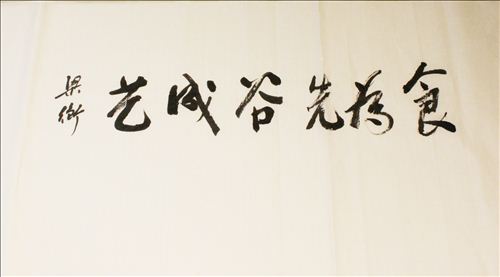 食為先谷成艺
梁衡